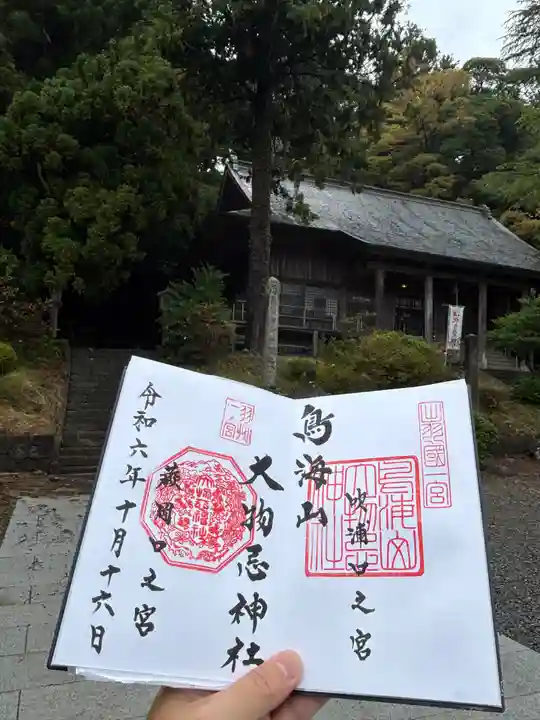 出羽國一宮
鳥海山
吹浦口之宮
鳥海山
大物忌
神社
大物忌神社
羽州
一ノ宮
蕨岡口之宮
令和六年十月十六日